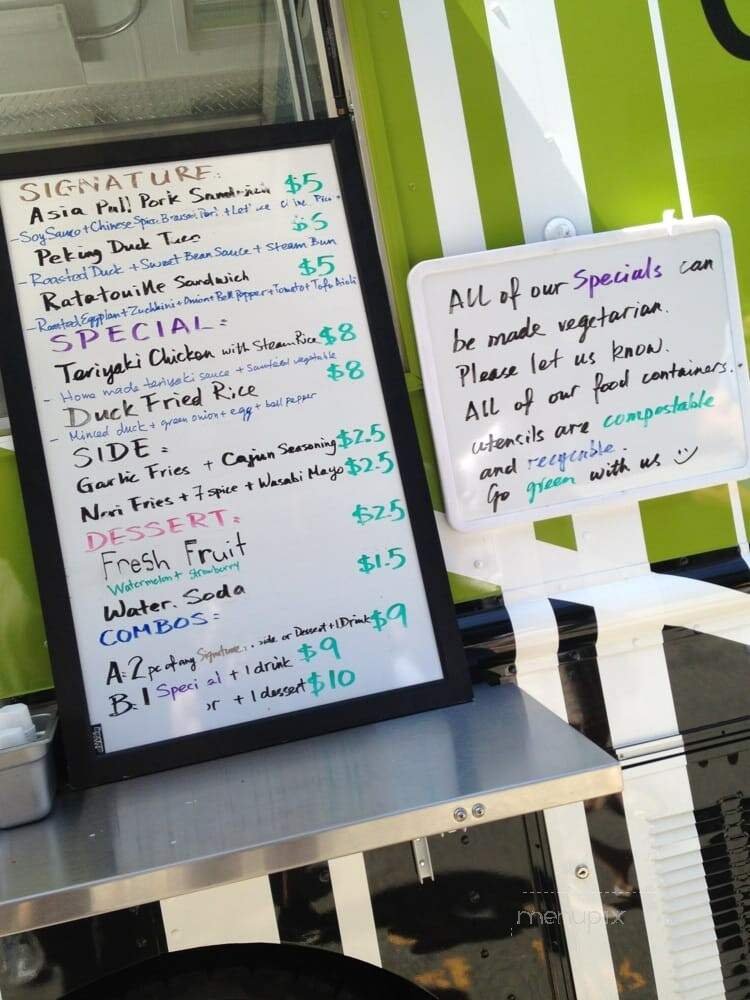 SIGNATURE:
Asia Pull Pork Sandwich $5
- Soy Sauce + Chinese Spice
Peking Duck $5
- Roasted Duck + Sweet Bean Sauce + Steam Bun
Ratatouille Sandwich $5
- Roasted Eggplant + Zucchini + Onion + Bell Pepper + Tomato + Tofu Aioli
SPECIAL:
Teriyaki Chicken with Steam Rice $8
- Home made teriyaki sauce + Sauteed vegetable
Duck Fried Rice $8
- Minced duck + green onion + egg + bell pepper
SIDE:
Garlic Fries + Cajun Seasoning $2.5
Nori Fries + 7 spice + Wasabi Mayo $2.5
DESSERT:
Fresh Fruit $2.5
Watermelon + Strawberry
Water. Soda $1.5
COMBOS:
A: 2 pc of any Signature + side or Dessert + 1 Drink $9
B: 1 Special + 1 drink $9
or + 1 dessert $10
ALL of our Specials can
be made vegetarian.
Please let us know.
ALL of our food containers.
utensils are compostable
and recycable.
Go green with us
menupix